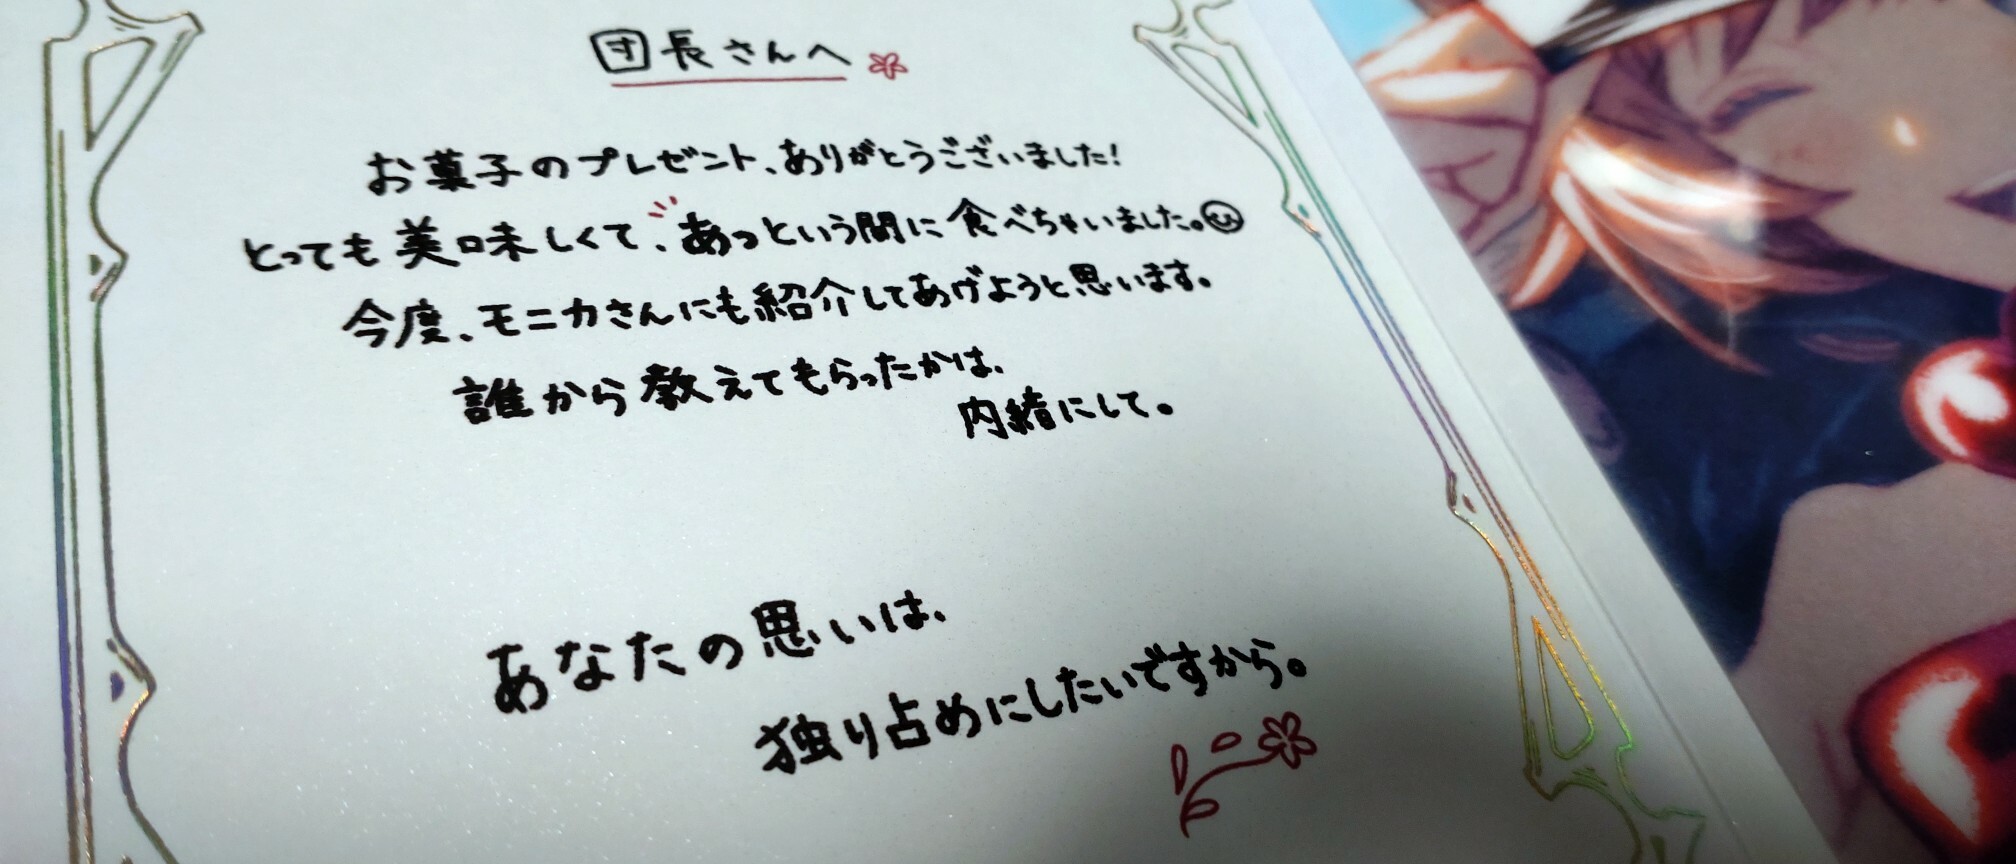 団長さんへ
お菓子のプレゼント、ありがとうございました!
とっても美味しくて、あっという間に食べちゃいました。
今度、モニカさんにも紹介してあげようと思います。
誰から教えてもらったかは、
内緒にして。
あなたの思いは、
独り占めにしたいですから。